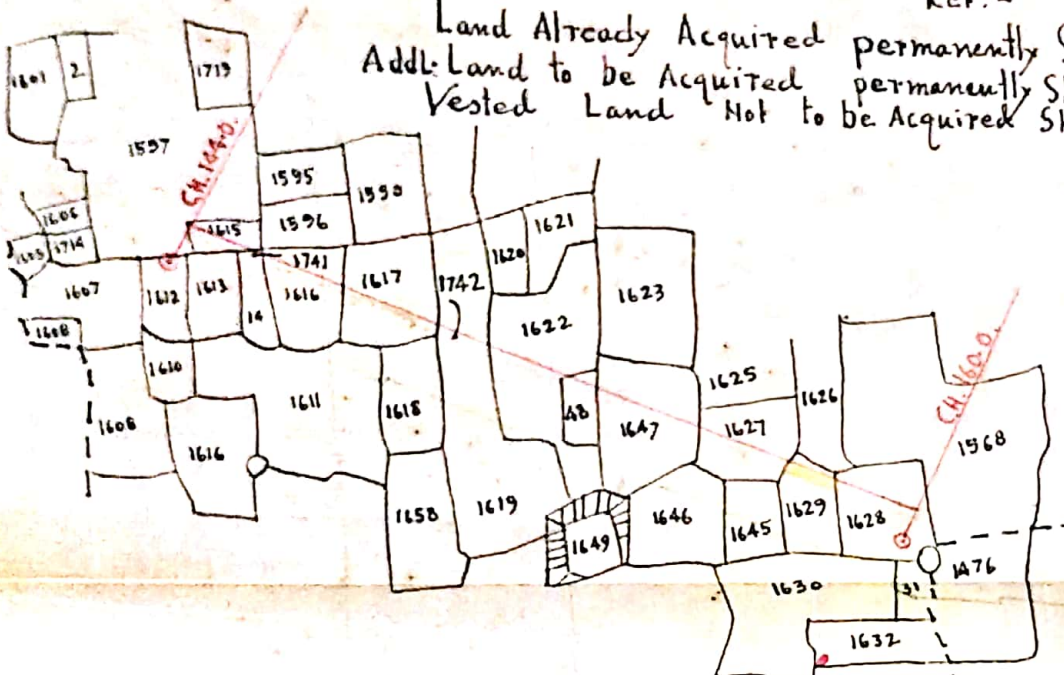 REF:-
Land Already Acquired permanently
Addl: Land to be Acquired permanently
Vested Land Not to be Acquired
1601
2
1713
1597
CH. 144.0.
1595
1590
1596
1605
1714
1615
1621
1620
1607
1612
1613
14
1741
1616
1617
1742
1623
1622
1608
1610
1611
1618
48
1647
1625
1626
1627
CH. 160.0.
1568
1608
1616
1658
1619
1649
1646
1645
1629
1628
1476
1630
31
1632